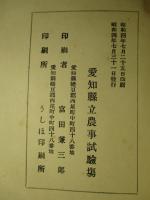 昭和四年七月二十五日印刷
昭和四年七月三十一日發行
愛知縣立農事試驗場
愛知縣幡豆郡西尾町中町四十八番地
印刷者 富田兼三郎
愛知縣幡豆郡西尾町中町四十八番地
印刷所 うしほ印刷所